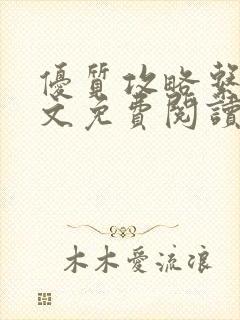 優質攻略系
文免費閱讀
木木愛流浪